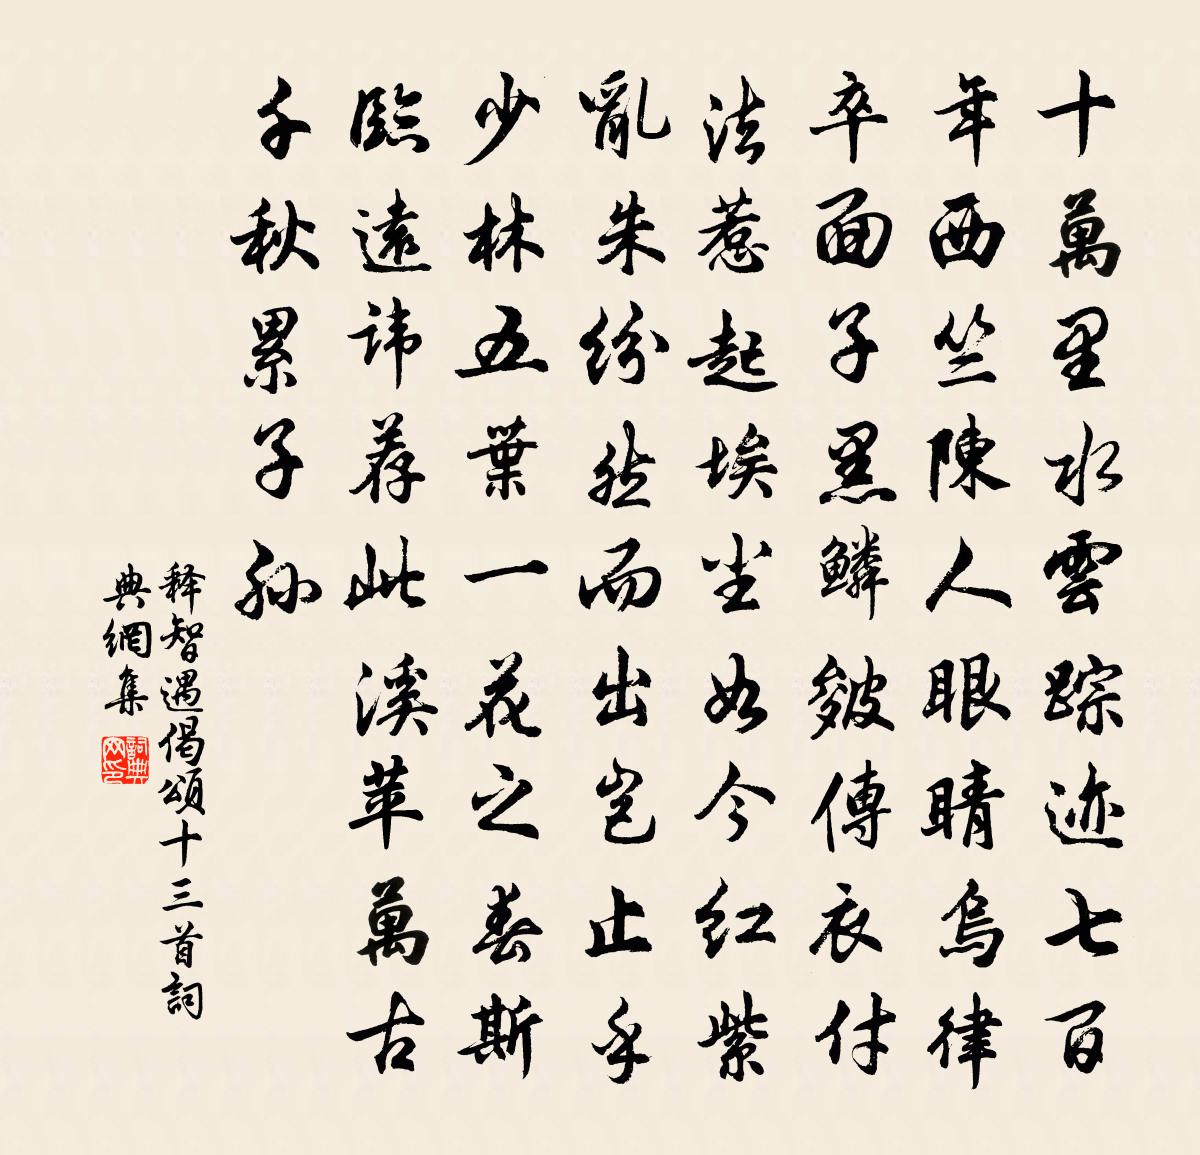 十萬里水雲踪迹七百
年西竺陳人眼睛烏律
卒面子黑鱗皴傳衣付
法惹起埃坐如今红紫
亂朱纷然而出岂止乎
少林五葉一花之春斯
臨遠讳荐此溪苹萬古
千秋累子孙
释智遇偈頌十三首詞
典網集
詞典网印